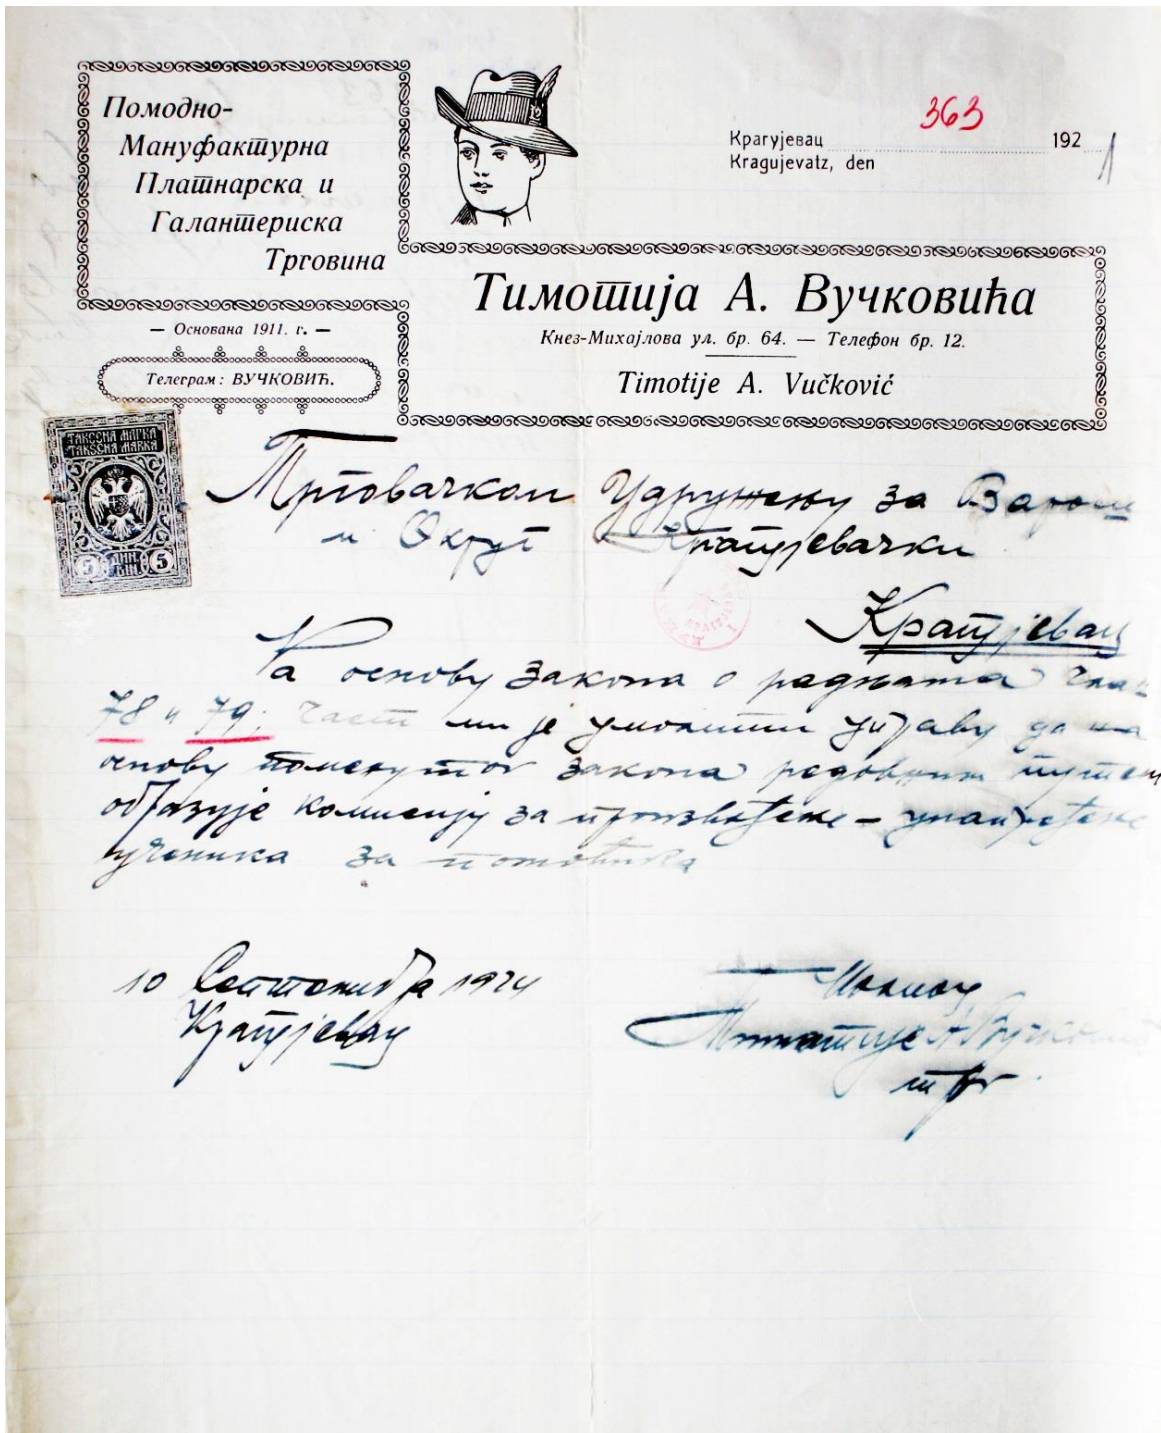 Помодно-
Мануфактурна
Платнарска и
Галантериска
Трговина
— Основана 1911. г. —
Телеграм: ВУЧКОВИЋ.
363
Крагујевац 192
Kragujevatz, den
Тимотија А. Вучковића
Кнез-Михајлова ул. бр. 64. — Телефон бр. 12.
Timotije A. Vučković
ТАКСЕНА МАРКА
TAKSENA MARKA
5 ДИН DIN 5
Трговачком Удружењу за Варош
и Округ Крагујевачки
Крагујевац
На основу закона о радњама
78 и 79; част ми је умолити управу да на
основу поменутог закона редовним путем
образује комисију за произвођење – унапређење
ученика за помоћника
10 Септембра 1924
Крагујевац
Тимотије А Вучковић
трг